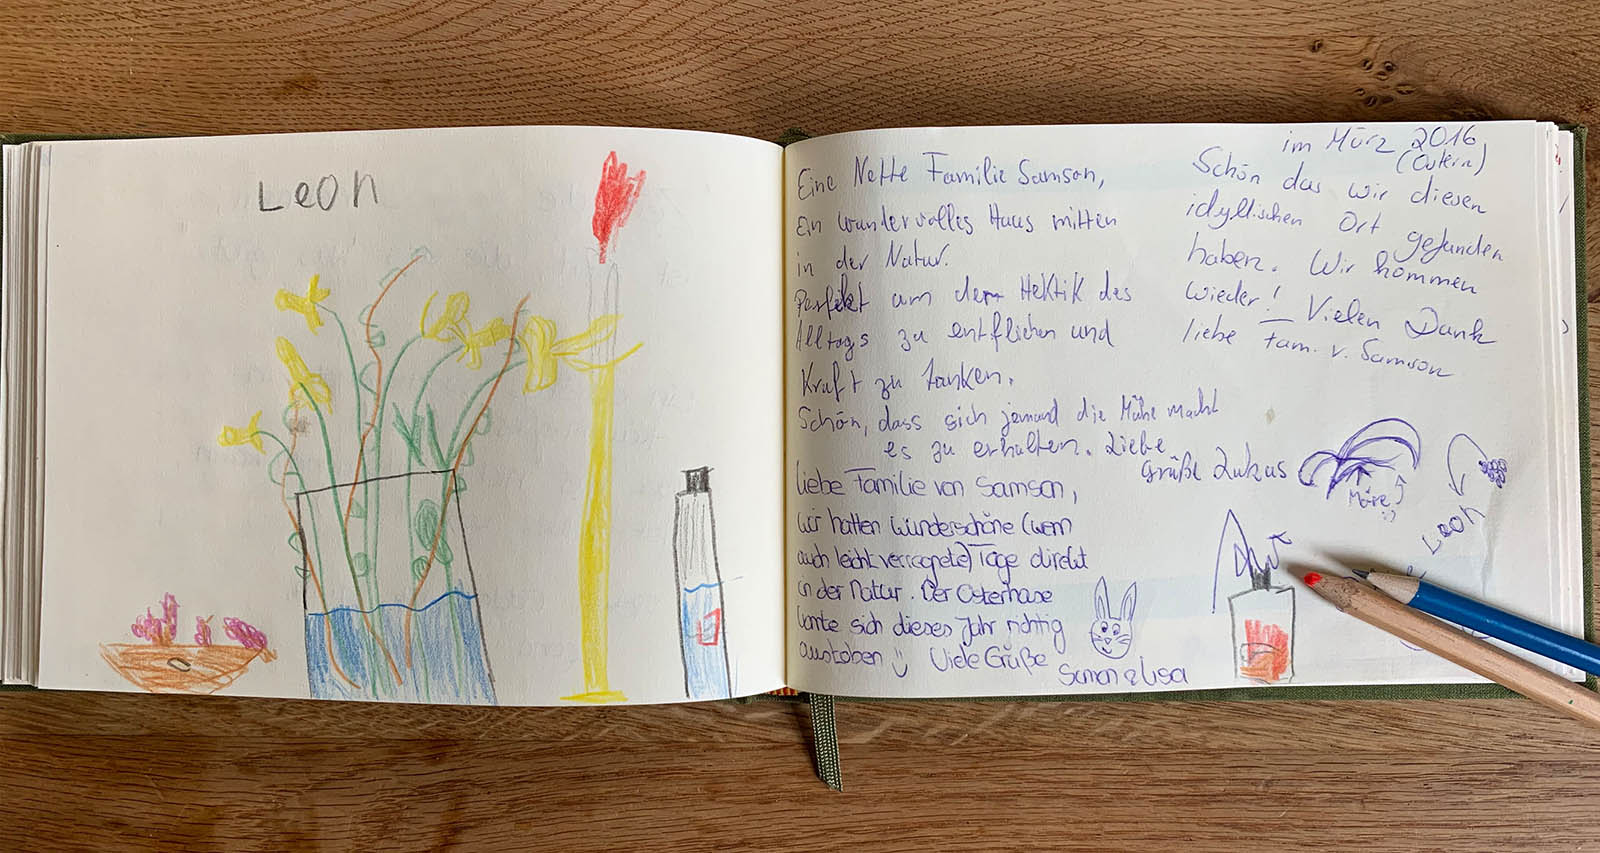 Leon
Eine Nette Familie Samson,
ein wundervolles Haus mitten
in der Natur.
Perfekt um der Hektik des
Alltags zu entfliehen und
Kraft zu tanken.
Schön, dass sich jemand die Mühe macht
es zu erhalten. Liebe
Grüße Lukas
Liebe Familie von Samson,
wir hatten wunderschöne (wenn
auch leicht verregnete) Tage direkt
in der Natur. Der Osterhase
konnte sich dieses Jahr richtig
austoben Viele Grüße
Simon & Lisa
im März 2016
(Ostern)
Schön das wir diesen
idyllischen Ort gefunden
haben. Wir kommen
wieder! Vielen Dank
liebe Fam. v. Samson
Leon